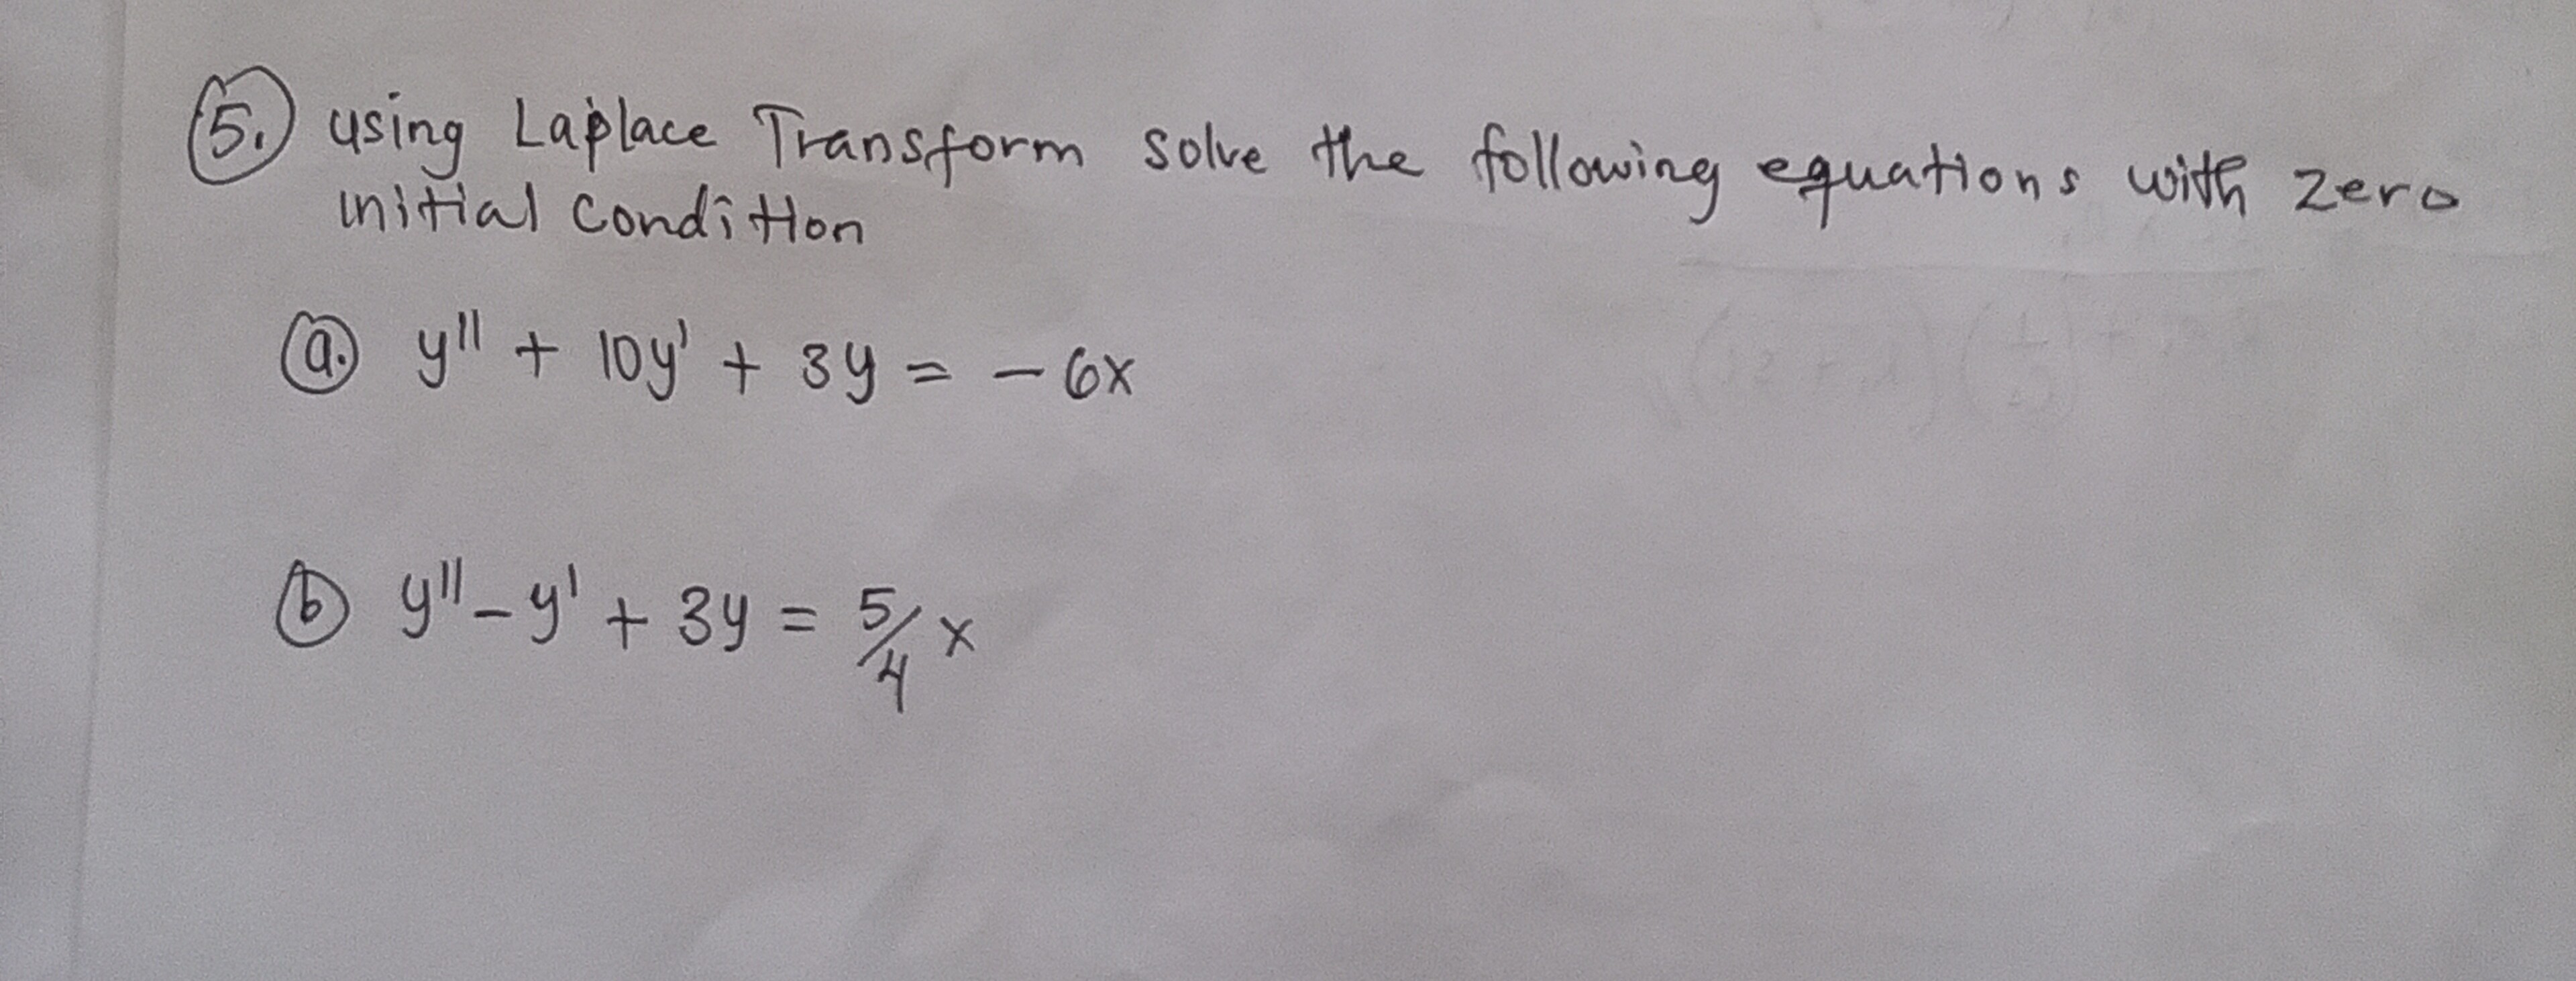 5. using Laplace Transform solve the following equations with zero
initial condition
a. y'' + 10y' + 3y = - 6x
b y'' - y' + 3y = 5/4 x